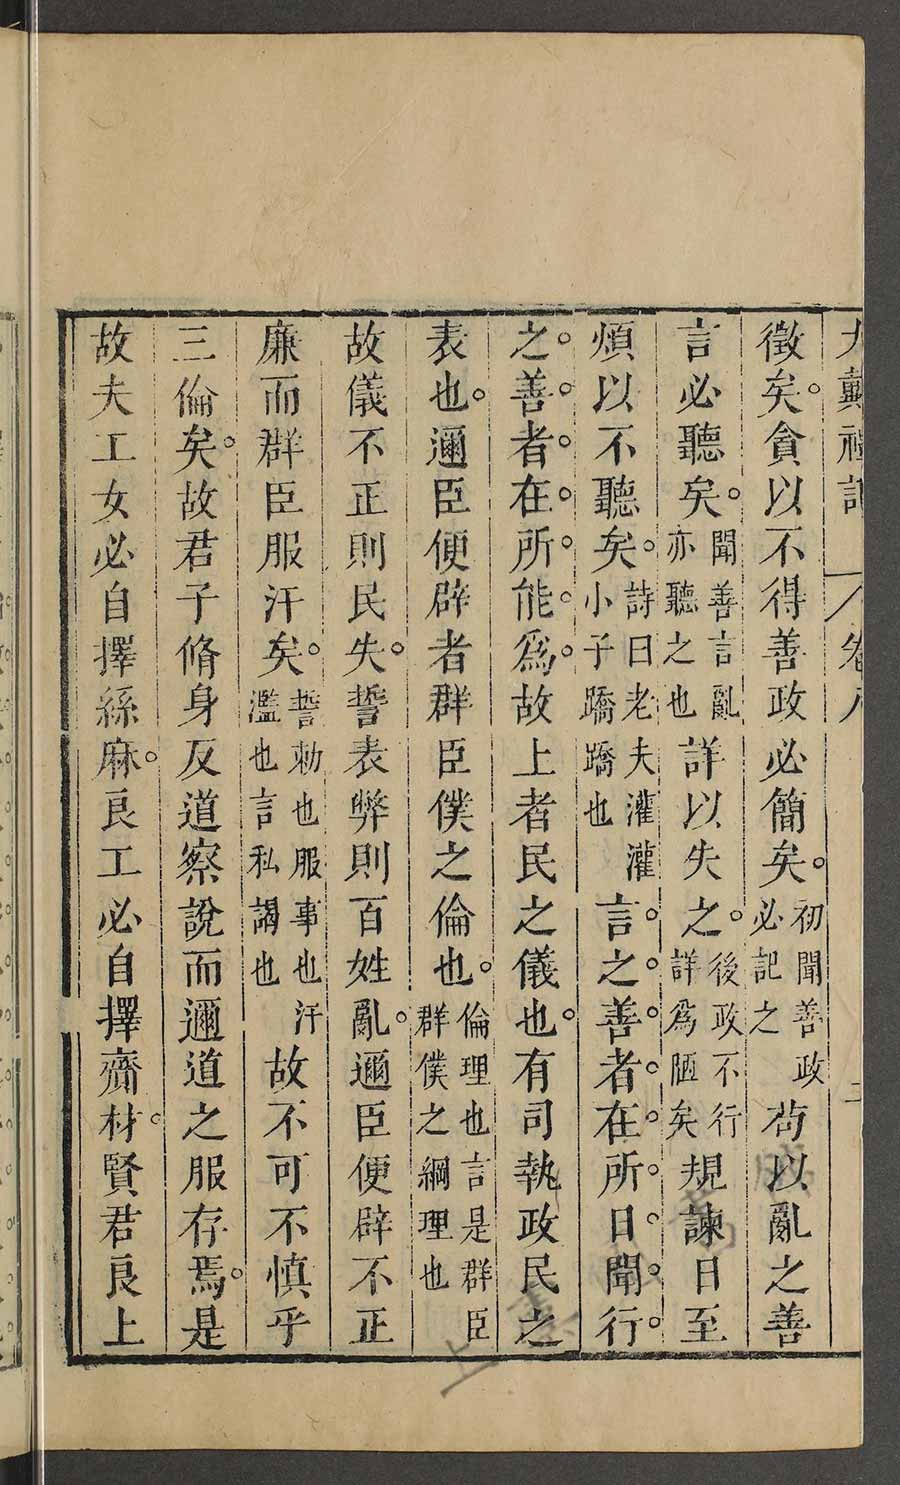 大戴禮記 卷八 二
徵矣。貪以不得善政必簡矣。初聞善政必記之苟以亂之善
言必聽矣。聞善言亂亦聽之也詳以失之。後政不行詳為陋矣規諫日至
煩以不聽矣。詩曰老夫灌灌小子蹻蹻也言。之。善。者。在。所。日。聞。行。
之。善。者。在。所。能。爲。故上者民之儀也。有司執政民之
表也。邇臣便辟者群臣僕之倫也。倫理也言是群臣群僕之綱理也
故儀不正則民失。誓表弊則百姓亂。邇臣便辟不正
廉而群臣服汙矣。誓勑也服事也汙濫也言私謁也故不可不慎乎
三倫矣。故君子脩身反道察說而邇道之服存焉。是
故夫工女必自擇絲麻。良工必自擇齎材。賢君良上